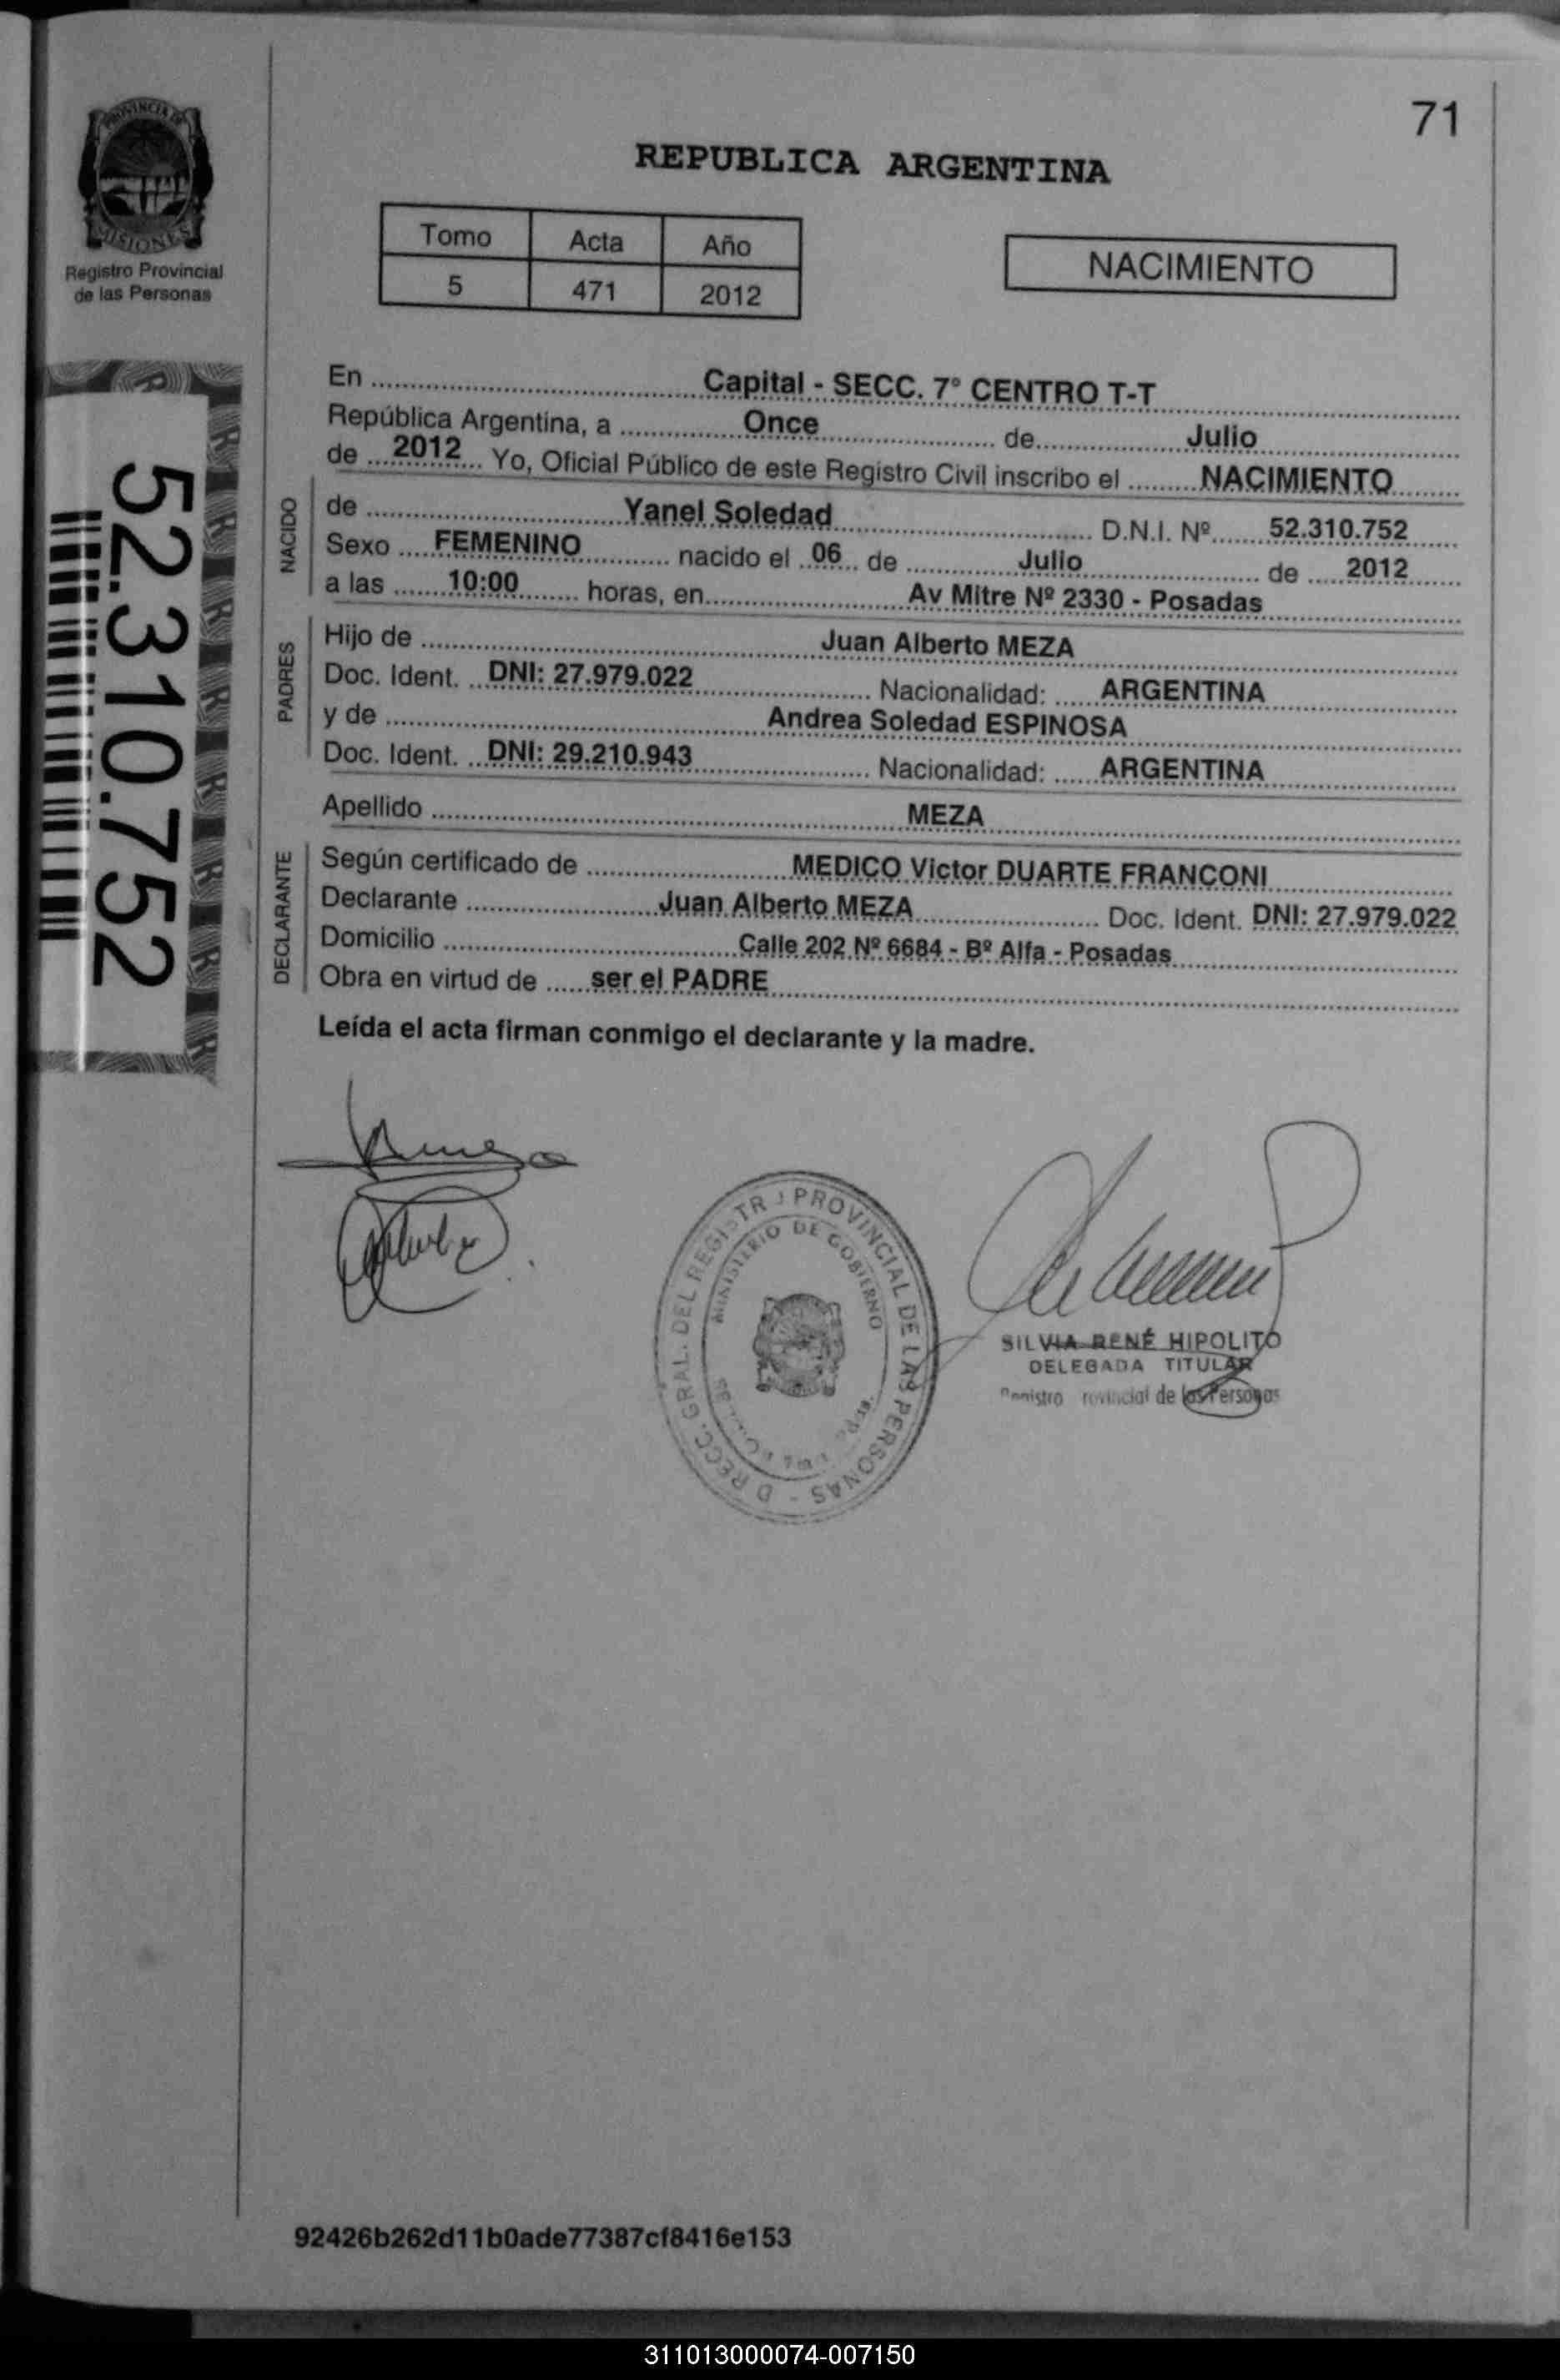 71
PROVINCIA DE
MISIONES
Registro Provincial
de las Personas
REPUBLICA ARGENTINA
Tomo Acta Año
5 471 2012
NACIMIENTO
52.310.752
En Capital - SECC. 7° CENTRO T-T
República Argentina, a Once de Julio
de 2012 Yo, Oficial Público de este Registro Civil inscribo el NACIMIENTO
NACIDO
de Yanel Soledad D.N.I. Nº 52.310.752
Sexo FEMENINO nacido el 06 de Julio de 2012
a las 10:00 horas, en Av Mitre Nº 2330 - Posadas
PADRES
Hijo de Juan Alberto MEZA
Doc. Ident. DNI: 27.979.022 Nacionalidad: ARGENTINA
y de Andrea Soledad ESPINOSA
Doc. Ident. DNI: 29.210.943 Nacionalidad: ARGENTINA
Apellido MEZA
DECLARANTE
Según certificado de MEDICO Victor DUARTE FRANCONI
Declarante Juan Alberto MEZA Doc. Ident. DNI: 27.979.022
Domicilio Calle 202 Nº 6684 - Bº Alfa - Posadas
Obra en virtud de ser el PADRE
Leída el acta firman conmigo el declarante y la madre.
GRAL. DEL PROVINCIAL DE LAS PERSONAS
MINISTERIO DE GOBIERNO
SILVIA RENÉ HIPOLITO
DELEGADA TITULAR
de las Personas
92426b262d11b0ade77387cf8416e153
311013000074-007150